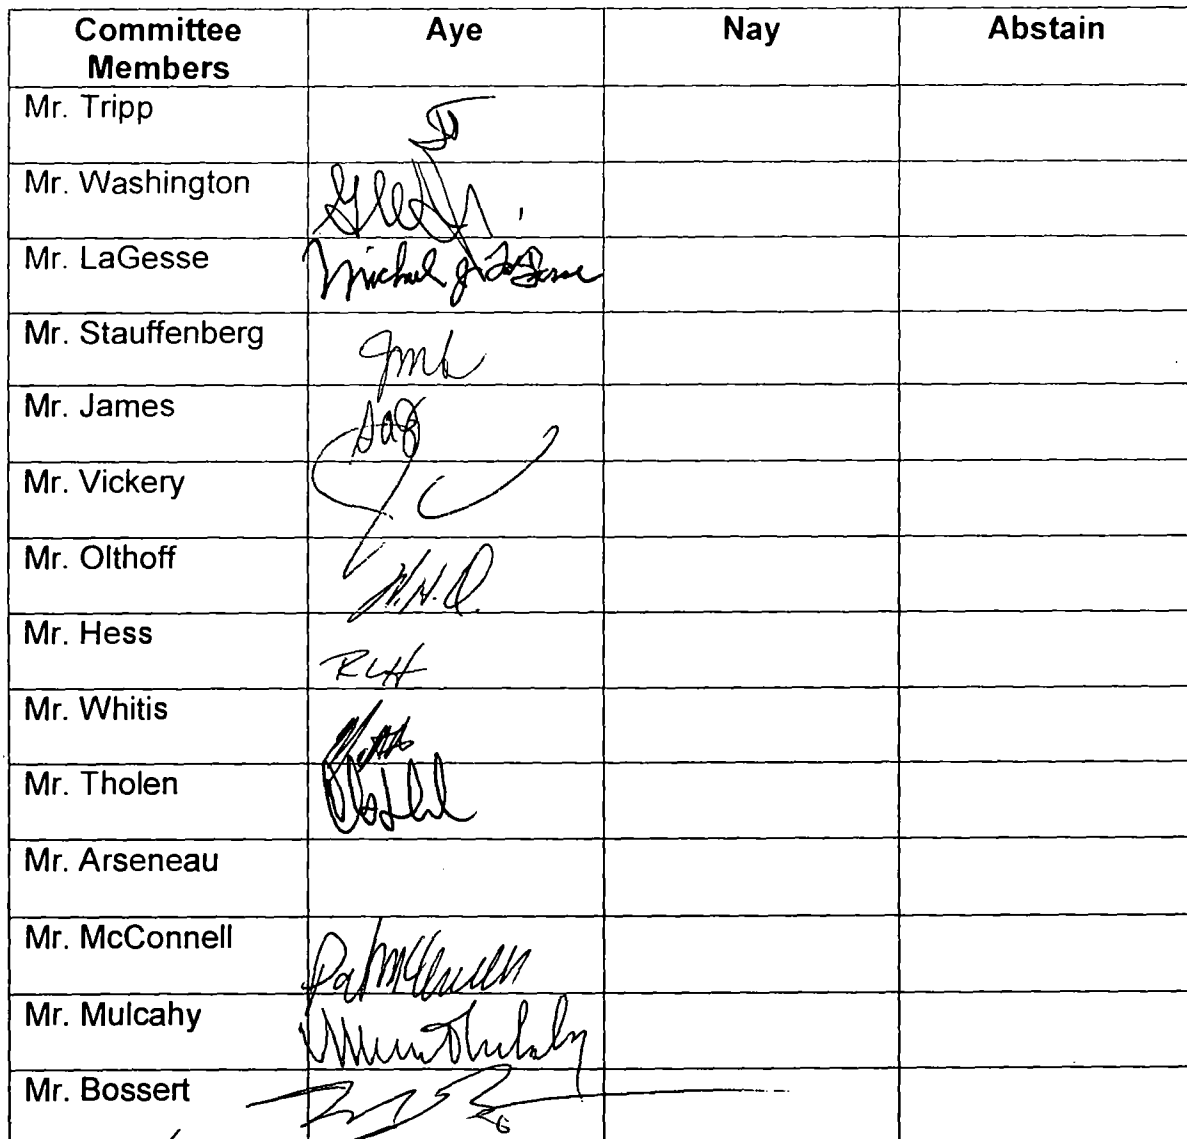 Committee Members Aye Nay Abstain
Mr. Tripp
Mr. Washington
Mr. LaGesse Michael J. LaGesse
Mr. Stauffenberg
Mr. James saj
Mr. Vickery
Mr. Olthoff W.H.O.
Mr. Hess RLH
Mr. Whitis
Mr. Tholen
Mr. Arseneau
Mr. McConnell Pat McConnell
Mr. Mulcahy
Mr. Bossert